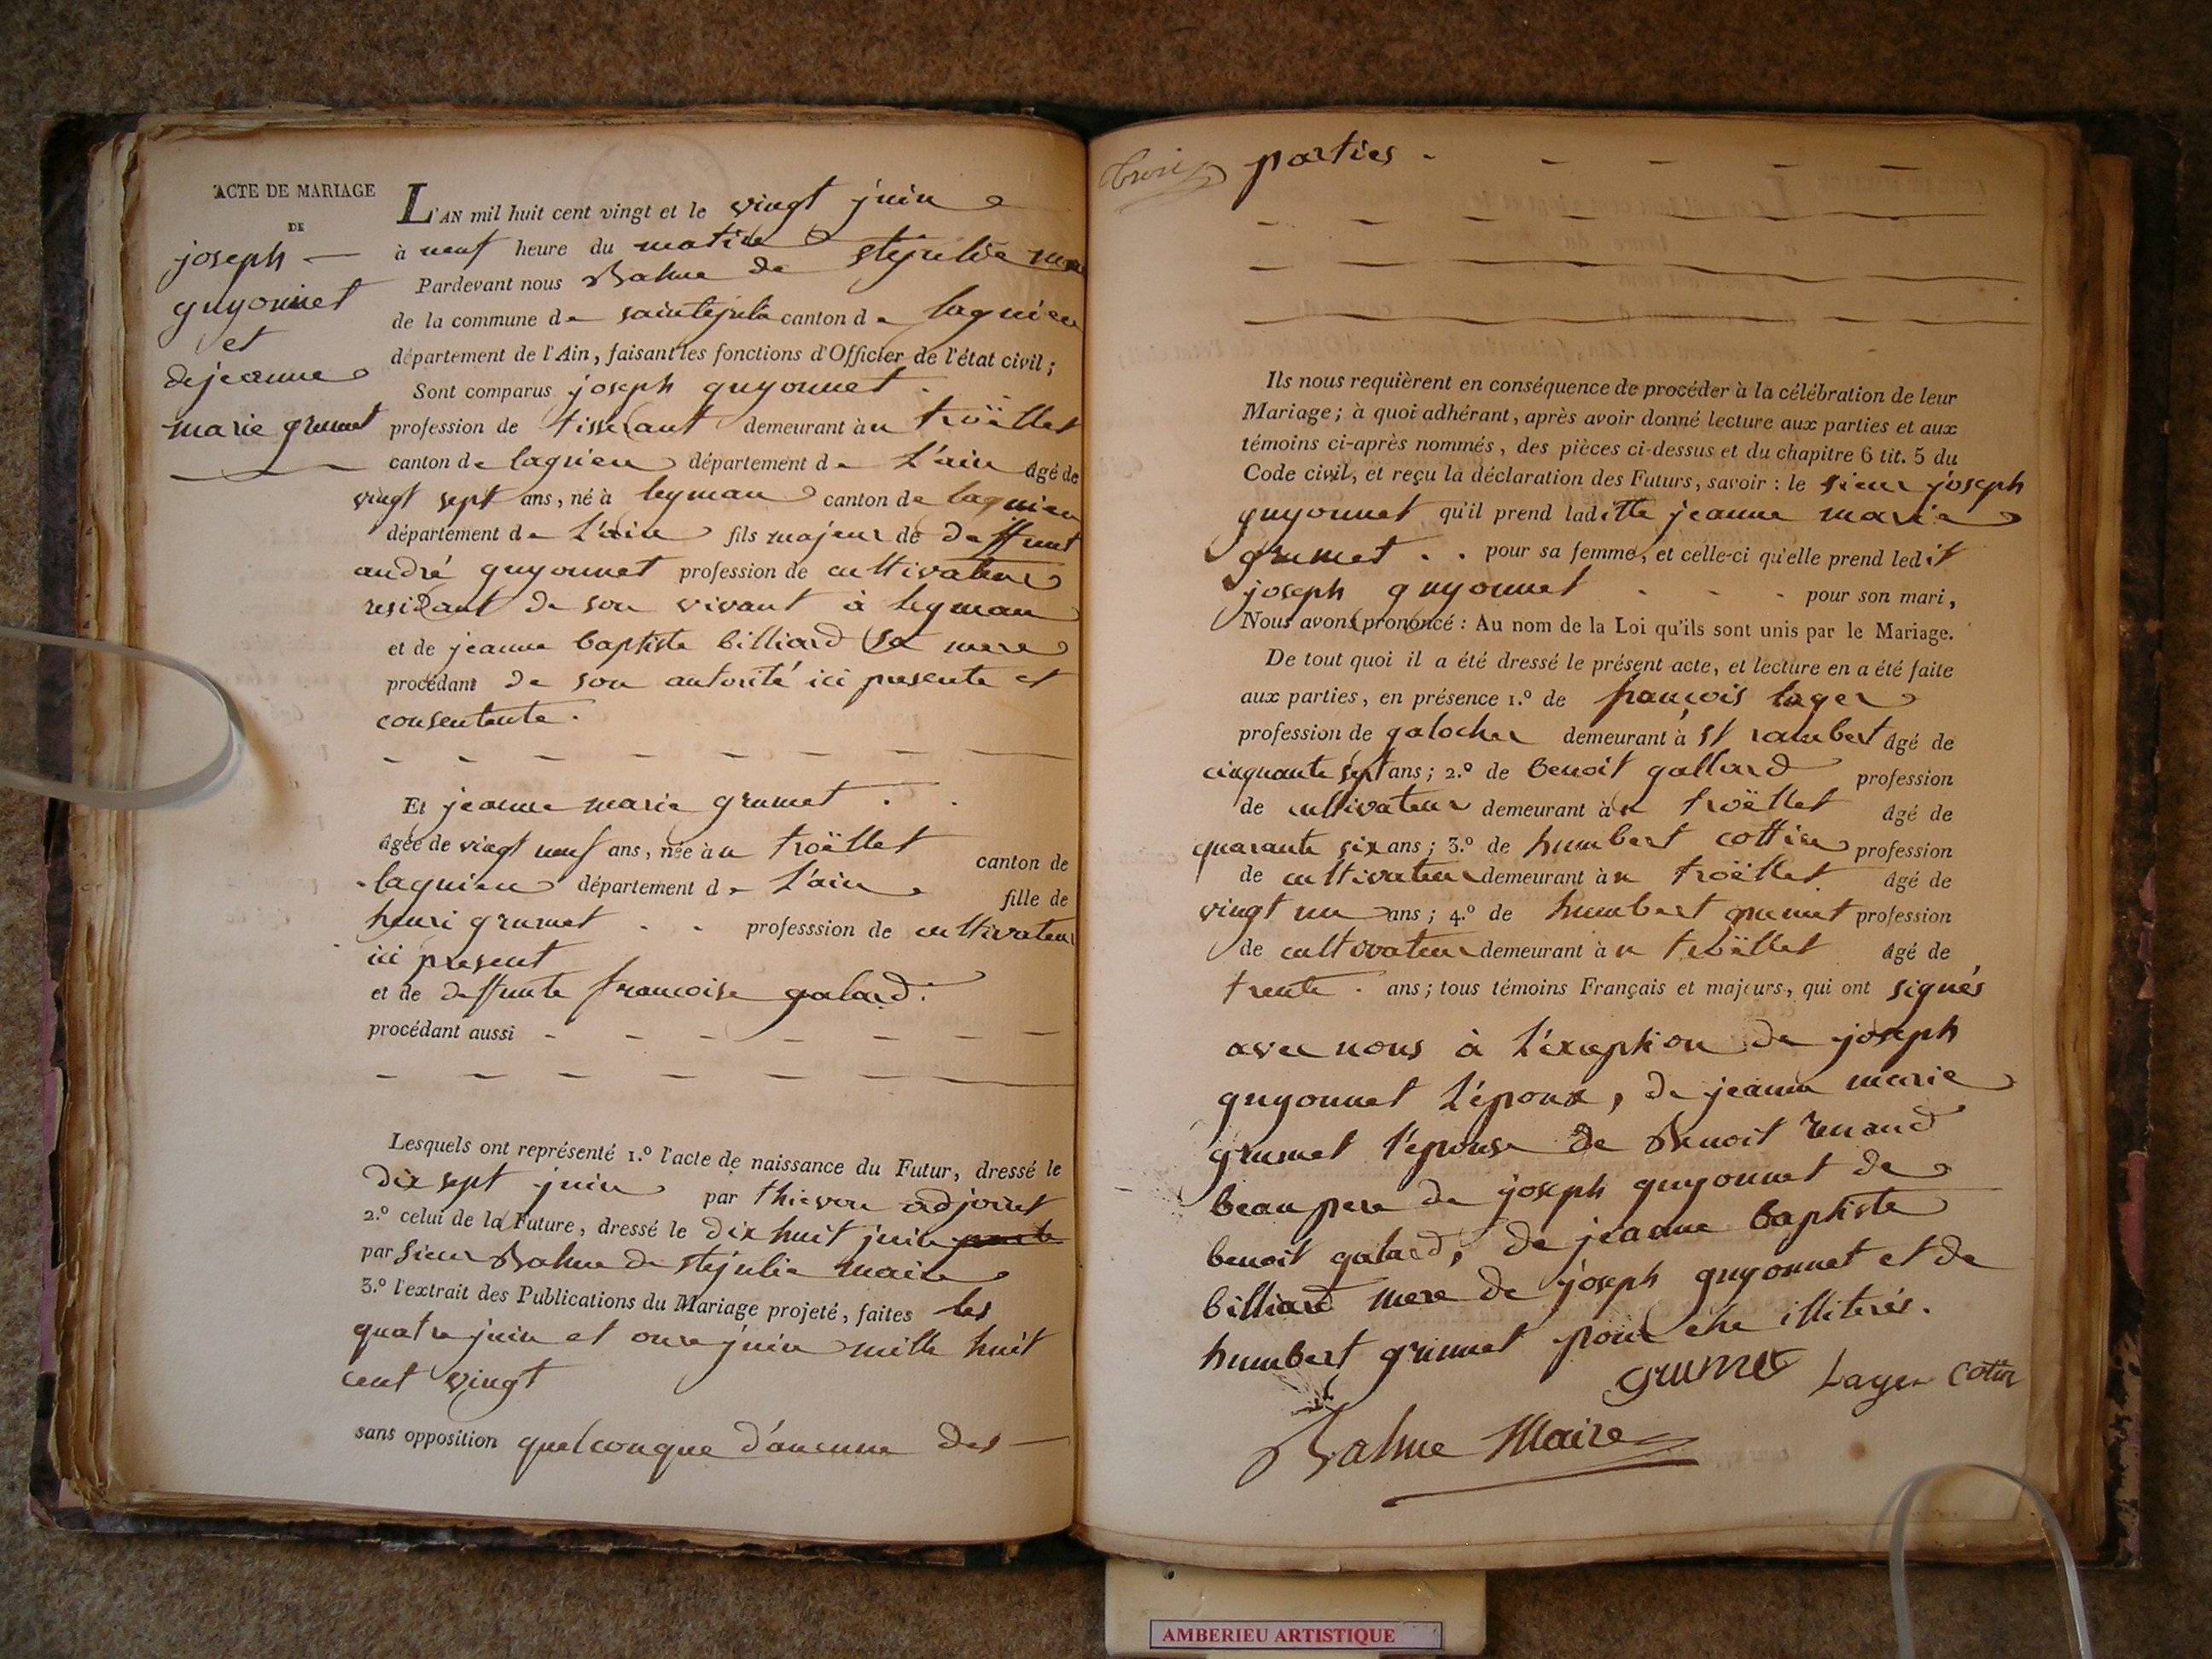 ACTE DE MARIAGE
DE
joseph
guyonnet
et
de jeanne
marie grumet
L'AN mil huit cent vingt et le vingt juin
à neuf heure du matin
Pardevant nous Balme de Ste julie
de la commune de sainte julie canton de lagnieu
département de l'Ain, faisant les fonctions d'Officier de l'état civil;
Sont comparus joseph guyonnet
profession de tisserant demeurant à n troëllet
canton de lagnieu département de L'ain âgé de
vingt sept ans, né à leyman canton de lagnieu
département de L'ain fils majeur de deffunt
andré guyonnet profession de cultivateur
residant de son vivant à leyman
et de jeanne baptiste billiard sa mere
procédant de son autorité ici presente et
consentente.
Et jeanne marie grumet
âgée de vingt neuf ans, née à n troëllet canton de
lagnieu département de L'ain fille de
henri grumet professsion de cultivateur
ici present
et de deffunte francoise galard.
procédant aussi
Lesquels ont représenté 1.º l'acte de naissance du Futur, dressé le
dix sept juin par thievon adjoint
2.º celui de la Future, dressé le dix huit juin
par sieur Balme de Ste julie maire
3.º l'extrait des Publications du Mariage projeté, faites les
quatre juin et onze juin mille huit
cent vingt
sans opposition quelconque d'aucune des
trois parties
Ils nous requièrent en conséquence de procéder à la célébration de leur
Mariage; à quoi adhérant, après avoir donné lecture aux parties et aux
témoins ci-après nommés, des pièces ci-dessus et du chapitre 6 tit. 5 du
Code civil, et reçu la déclaration des Futurs, savoir: le sieur joseph
guyonnet qu'il prend laditte jeanne marie
grumet pour sa femme, et celle-ci qu'elle prend ledit
joseph guyonnet pour son mari,
Nous avons prononcé: Au nom de la Loi qu'ils sont unis par le Mariage.
De tout quoi il a été dressé le présent acte, et lecture en a été faite
aux parties, en présence 1.º de françois lager
profession de galocher demeurant à St rambert âgé de
cinquante sept ans; 2.º de benoit gallard profession
de cultivateur demeurant à n troëllet âgé de
quarante six ans; 3.º de humbert cottin profession
de cultivateur demeurant à n troëllet âgé de
vingt un ans; 4.º de humbert grumet profession
de cultivateur demeurant à n troëllet âgé de
trente ans; tous témoins Français et majeurs, qui ont signés
avec nous à l'exeption de joseph
guyonnet l'époux, de jeanne marie
grumet l'epouse de Benoit renaud
beau pere de joseph guyonnet de
benoit galard, de jeanne baptiste
billiard mere de joseph guyonnet et de
humbert grumet pour etre illiterés.
grumet Lager Cottin
Balme Maire
AMBERIEU ARTISTIQUE